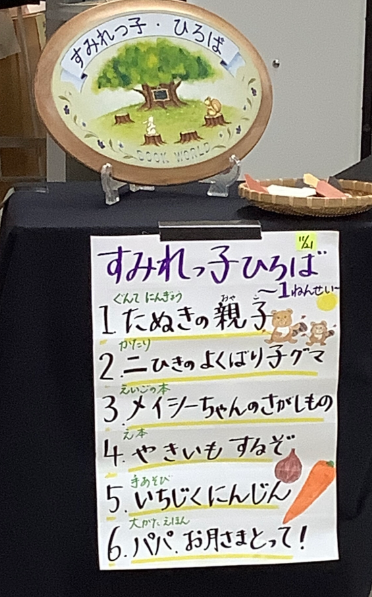 すみれっ子・ひろば
BOOK WORLD
11/21
すみれっ子ひろば
～1ねんせい～
ぐんて にんぎょう
1 たぬきの親子
おや こ
かたり
2. 二ひきのよくばり子グマ
えいごの本
3. メイシーちゃんのさがしもの
え本
4. やきいもするぞ
手あそび
5. いちじくにんじん
大がたえほん
6. パパ、お月さまとって!